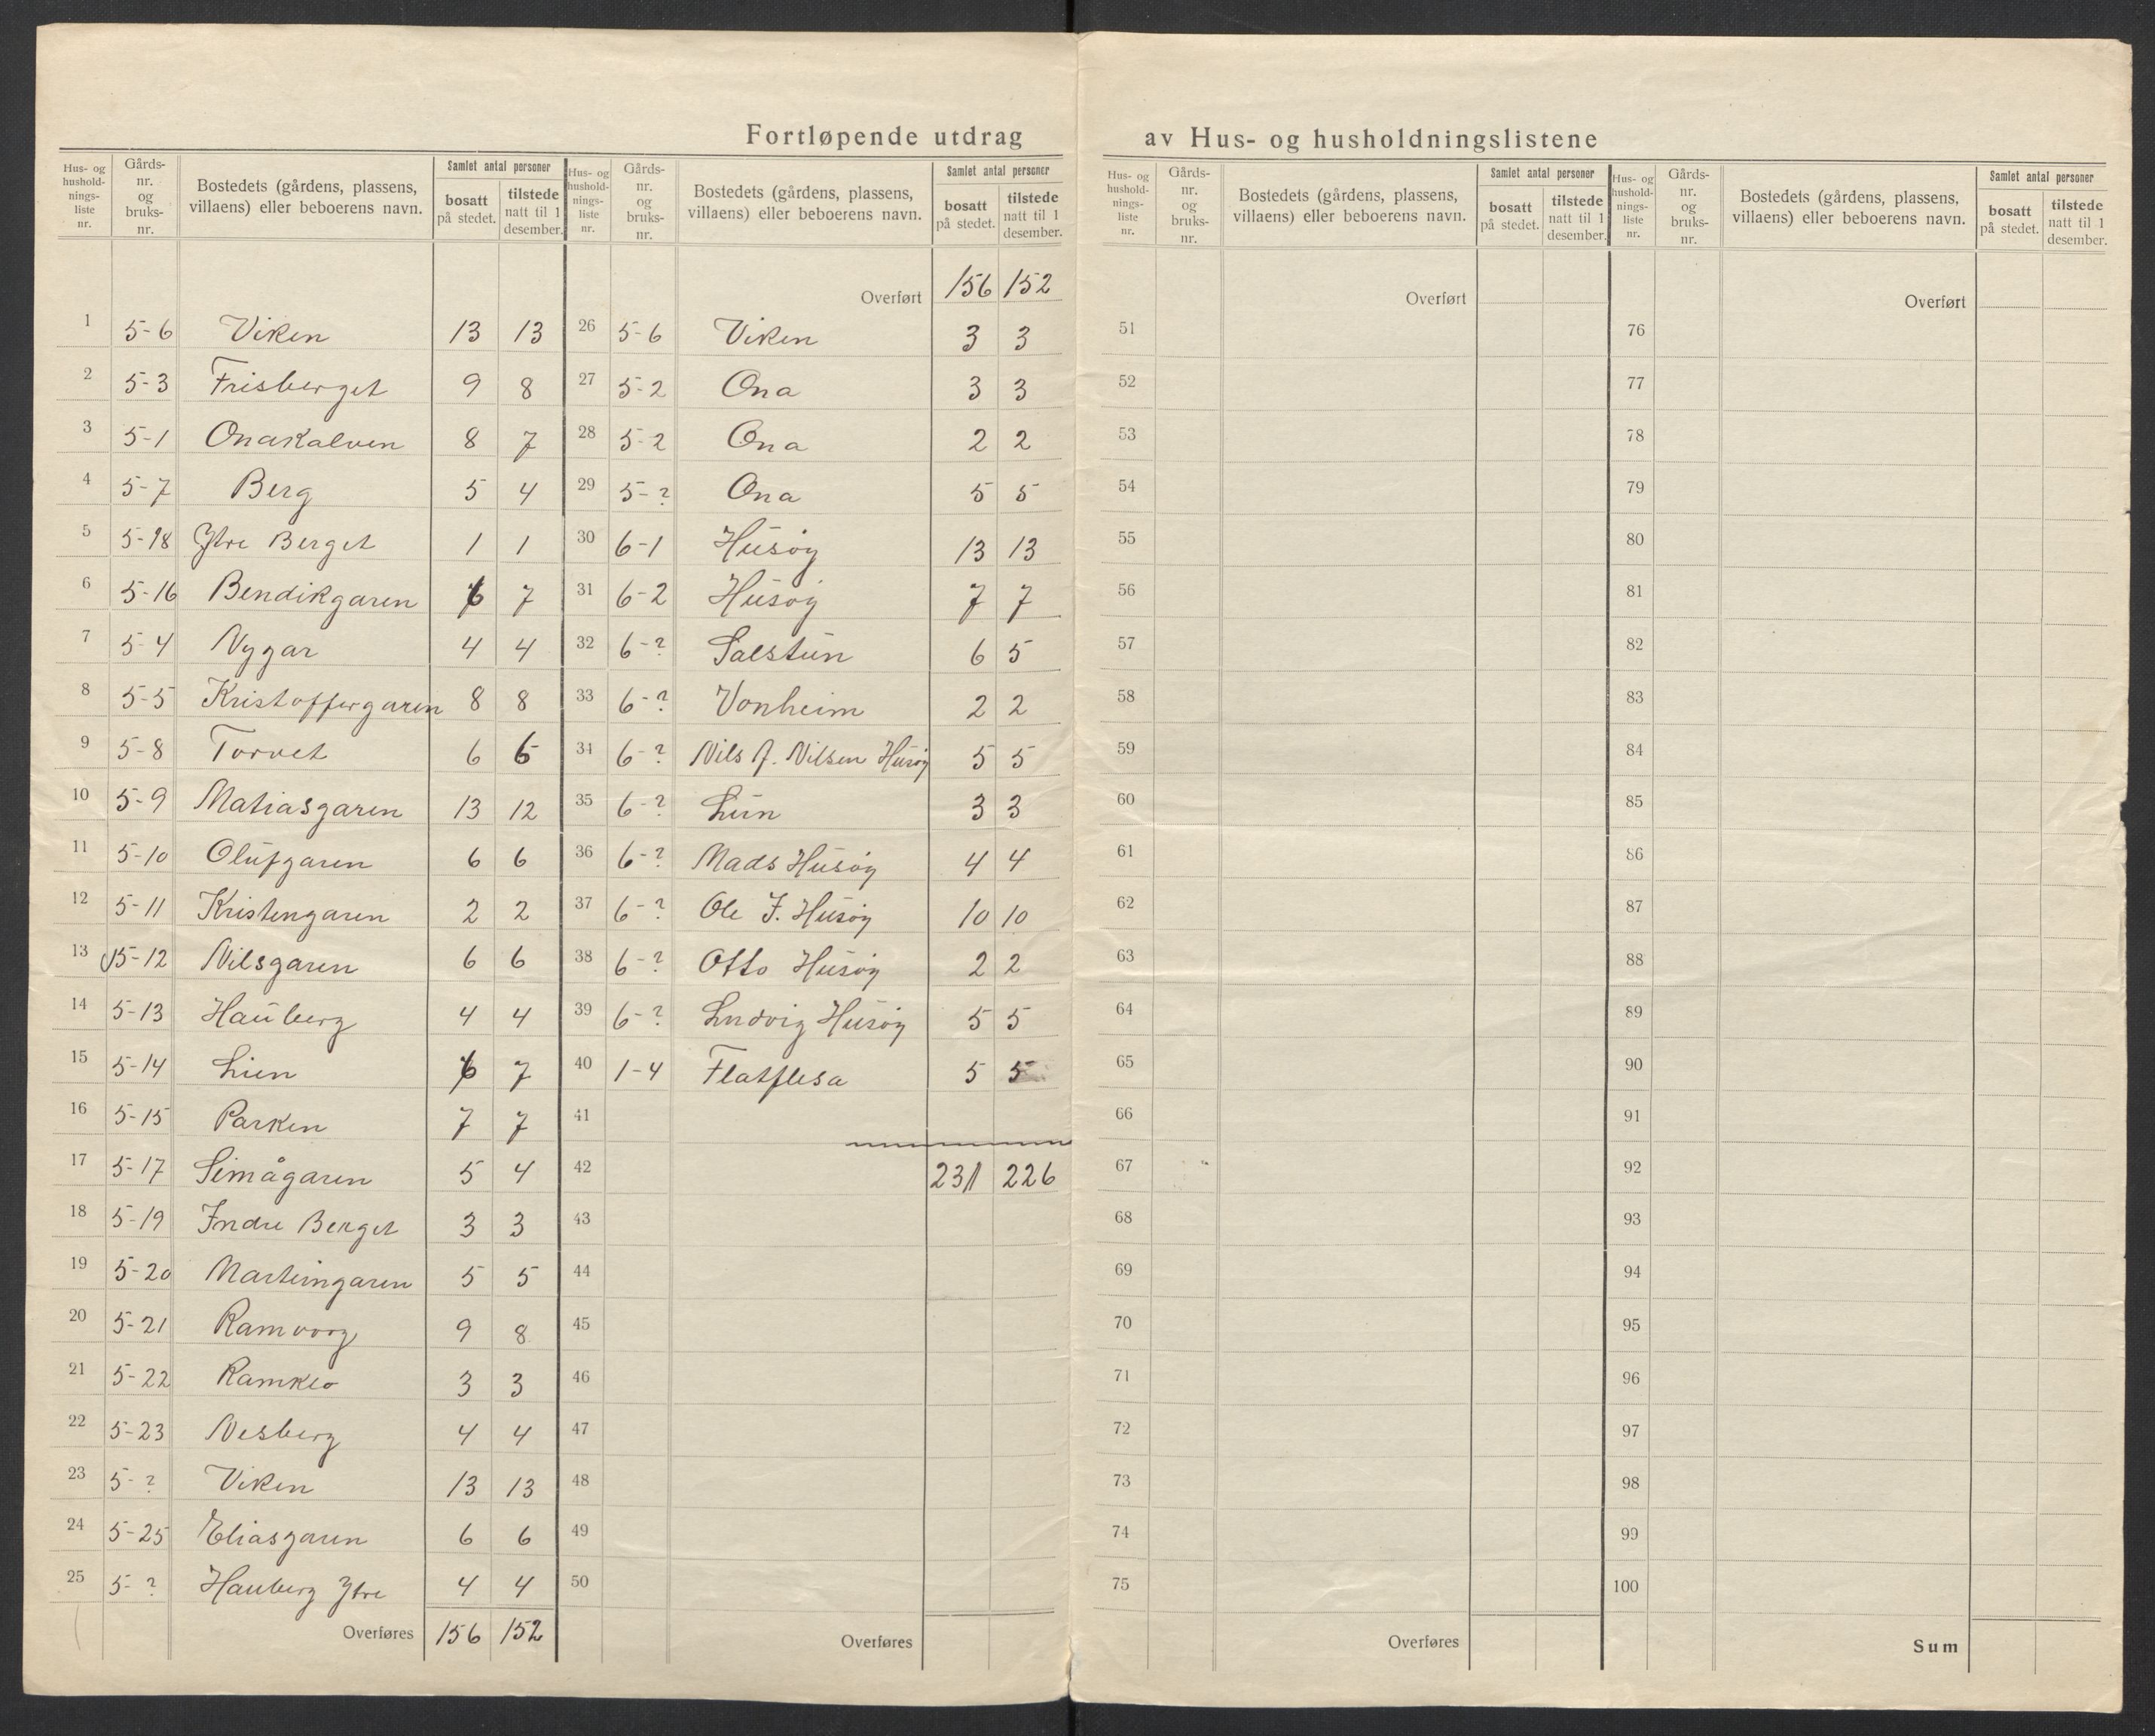 Fortløpende utdrag av Hus- og husholdningslistene
Hus- og husholdnings-liste nr. Gårds-nr. og bruks-nr. Bostedets (gårdens, plassens, villaens) eller beboerens navn. Samlet antal personer bosatt på stedet. tilstede natt til 1 desember.
1 5-6 Viken 13 13
2 5-3 Frisberget 9 8
3 5-1 Onakalven 8 7
4 5-7 Berg 5 4
5 5-18 Ytre Berget 1 1
6 5-16 Bendikgaren 6 7
7 5-4 Nygar 4 4
8 5-5 Kristoffergaren 8 8
9 5-8 Torvet 6 6
10 5-9 Matiasgaren 13 12
11 5-10 Olufgaren 6 6
12 5-11 Kristengaren 2 2
13 5-12 Nilsgaren 6 6
14 5-13 Hauberg 4 4
15 5-14 Lien 6 7
16 5-15 Parken 7 7
17 5-17 Simågaren 5 4
18 5-19 Indre Berget 3 3
19 5-20 Marteingaren 5 5
20 5-21 Ramvorg 9 8
21 5-22 Ramklo 3 3
22 5-23 Nesberg 4 4
23 5-? Viken 13 13
24 5-25 Eliasgaren 6 6
25 5-? Hauberg Ytre 4 4
Overføres 156 152
Hus- og husholdnings-liste nr. Gårds-nr. og bruks-nr. Bostedets (gårdens, plassens, villaens) eller beboerens navn. Samlet antal personer bosatt på stedet. tilstede natt til 1 desember.
Overført 156 152
26 5-6 Viken 3 3
27 5-2 Ona 3 3
28 5-2 Ona 2 2
29 5-? Ona 5 5
30 6-1 Husøy 13 13
31 6-2 Husøy 7 7
32 6-? Salstun 6 5
33 6-? Vonheim 2 2
34 6-? Nils A. Nilsen Husøy 5 5
35 6-? Lun 3 3
36 6-? Mads Husøy 4 4
37 6-? Ole J. Husøy 10 10
38 6-? Otto Husøy 2 2
39 6-? Ludvig Husøy 5 5
40 1-4 Flatflesa 5 5
41
42 231 226
43
44
45
46
47
48
49
50
Overføres
Hus- og husholdnings-liste nr. Gårds-nr. og bruks-nr. Bostedets (gårdens, plassens, villaens) eller beboerens navn. Samlet antal personer bosatt på stedet. tilstede natt til 1 desember.
Overført
51
52
53
54
55
56
57
58
59
60
61
62
63
64
65
66
67
68
69
70
71
72
73
74
75
Overføres
Hus- og husholdnings-liste nr. Gårds-nr. og bruks-nr. Bostedets (gårdens, plassens, villaens) eller beboerens navn. Samlet antal personer bosatt på stedet. tilstede natt til 1 desember.
Overført
76
77
78
79
80
81
82
83
84
85
86
87
88
89
90
91
92
93
94
95
96
97
98
99
100
Sum